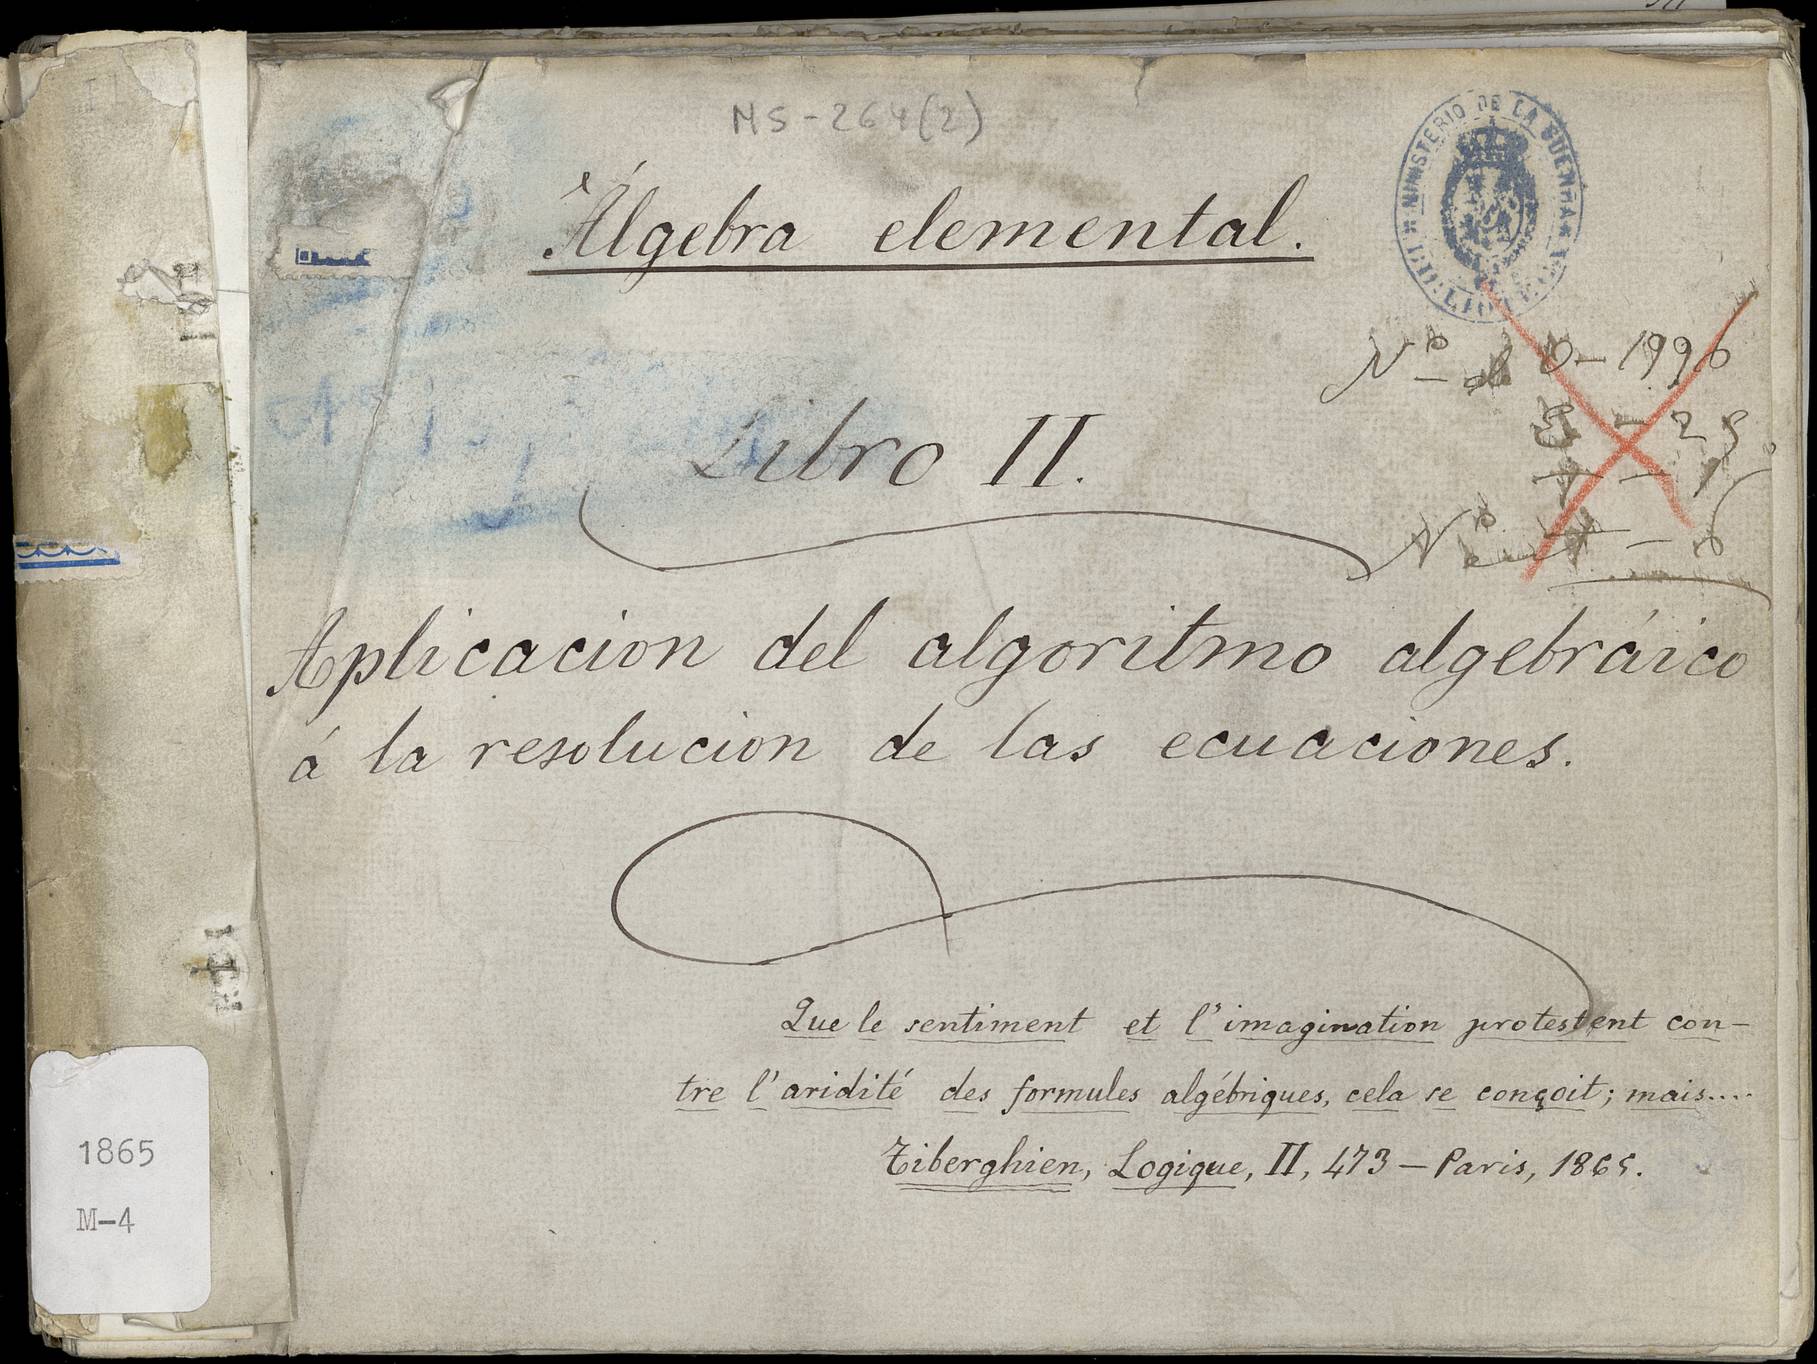 MS-264(2)
Álgebra elemental.
MINISTERIO DE LA GUERRA
Nº 1996
Libro II.
Aplicacion del algoritmo algebráico
á la resolucion de las ecuaciones.
Que le sentiment et l'imagination protestent con-
tre l'aridité des formules algébriques, cela se conçoit; mais....
Tiberghien, Logique, II, 473 — Paris, 1865.
1865
M-4